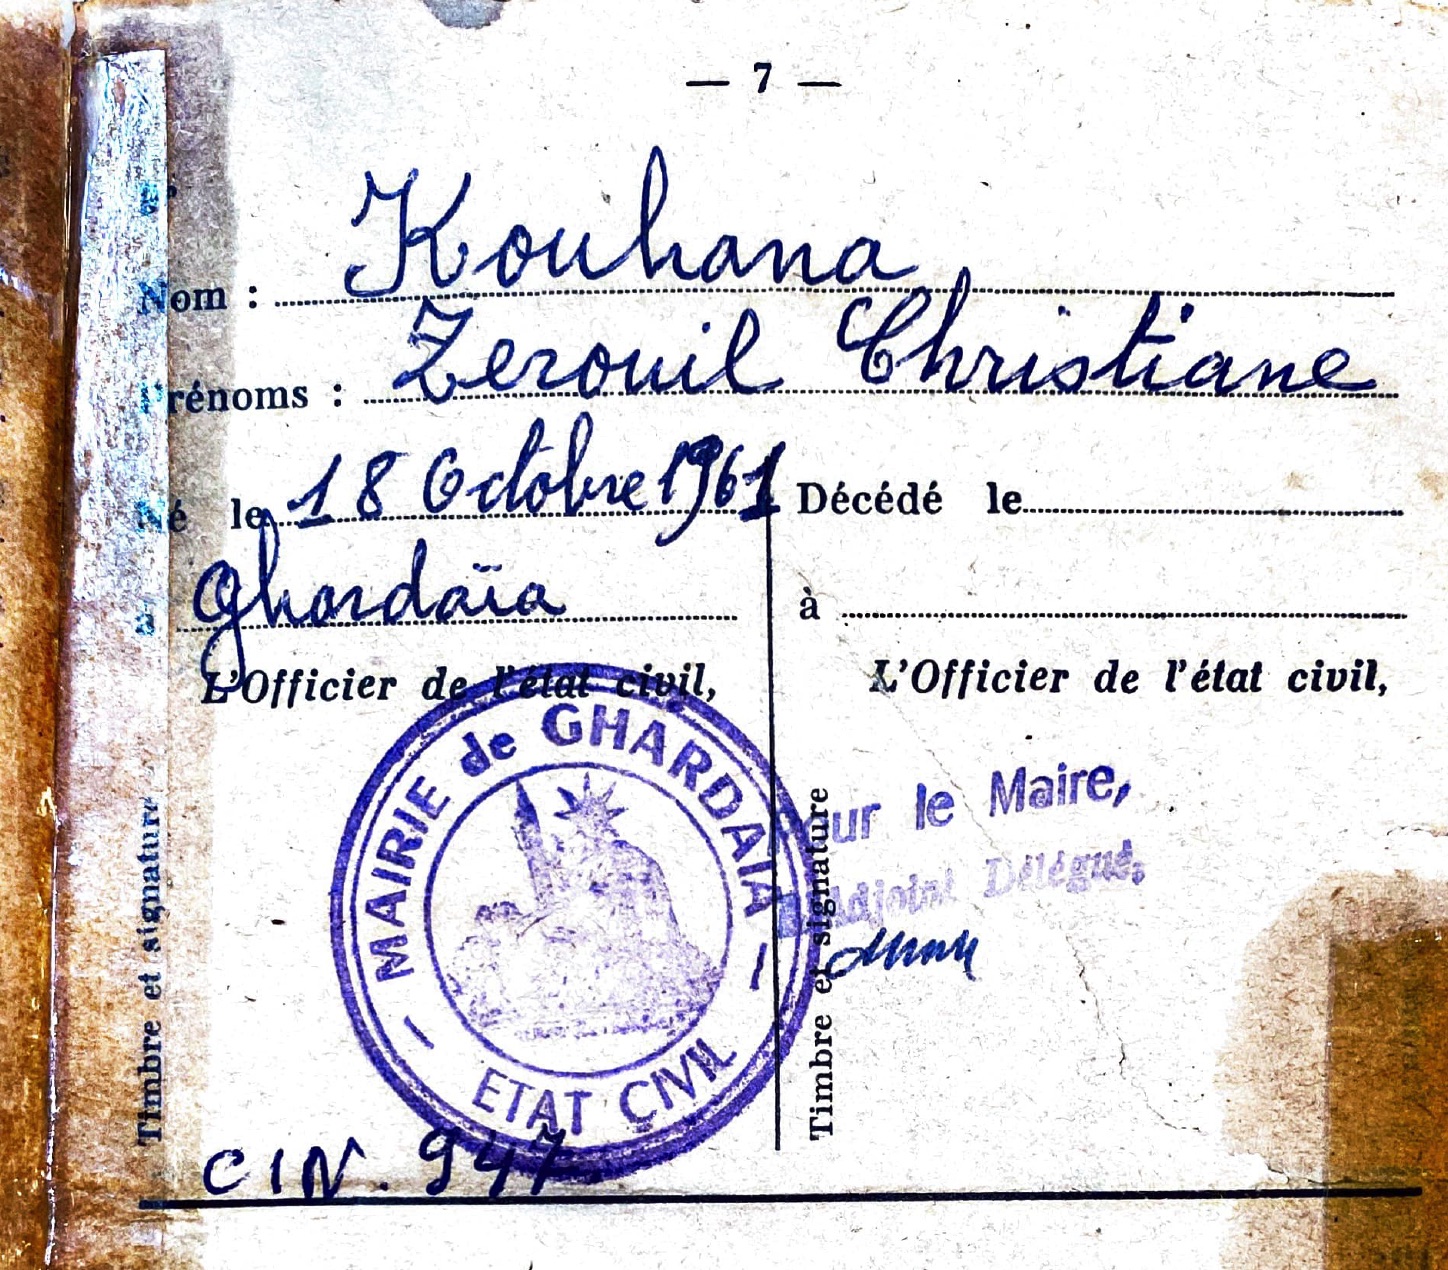 — 7 —
Nom : Kouhana
Prénoms : Zerouil Christiane
Né le 18 Octobre 1961
à Ghardaïa
L'Officier de l'état civil,
MAIRIE de GHARDAIA
ETAT CIVIL
Timbre et signature
CIN. 947
Décédé le
à
L'Officier de l'état civil,
Pour le Maire,
Adjoint Délégué,
Timbre et signature